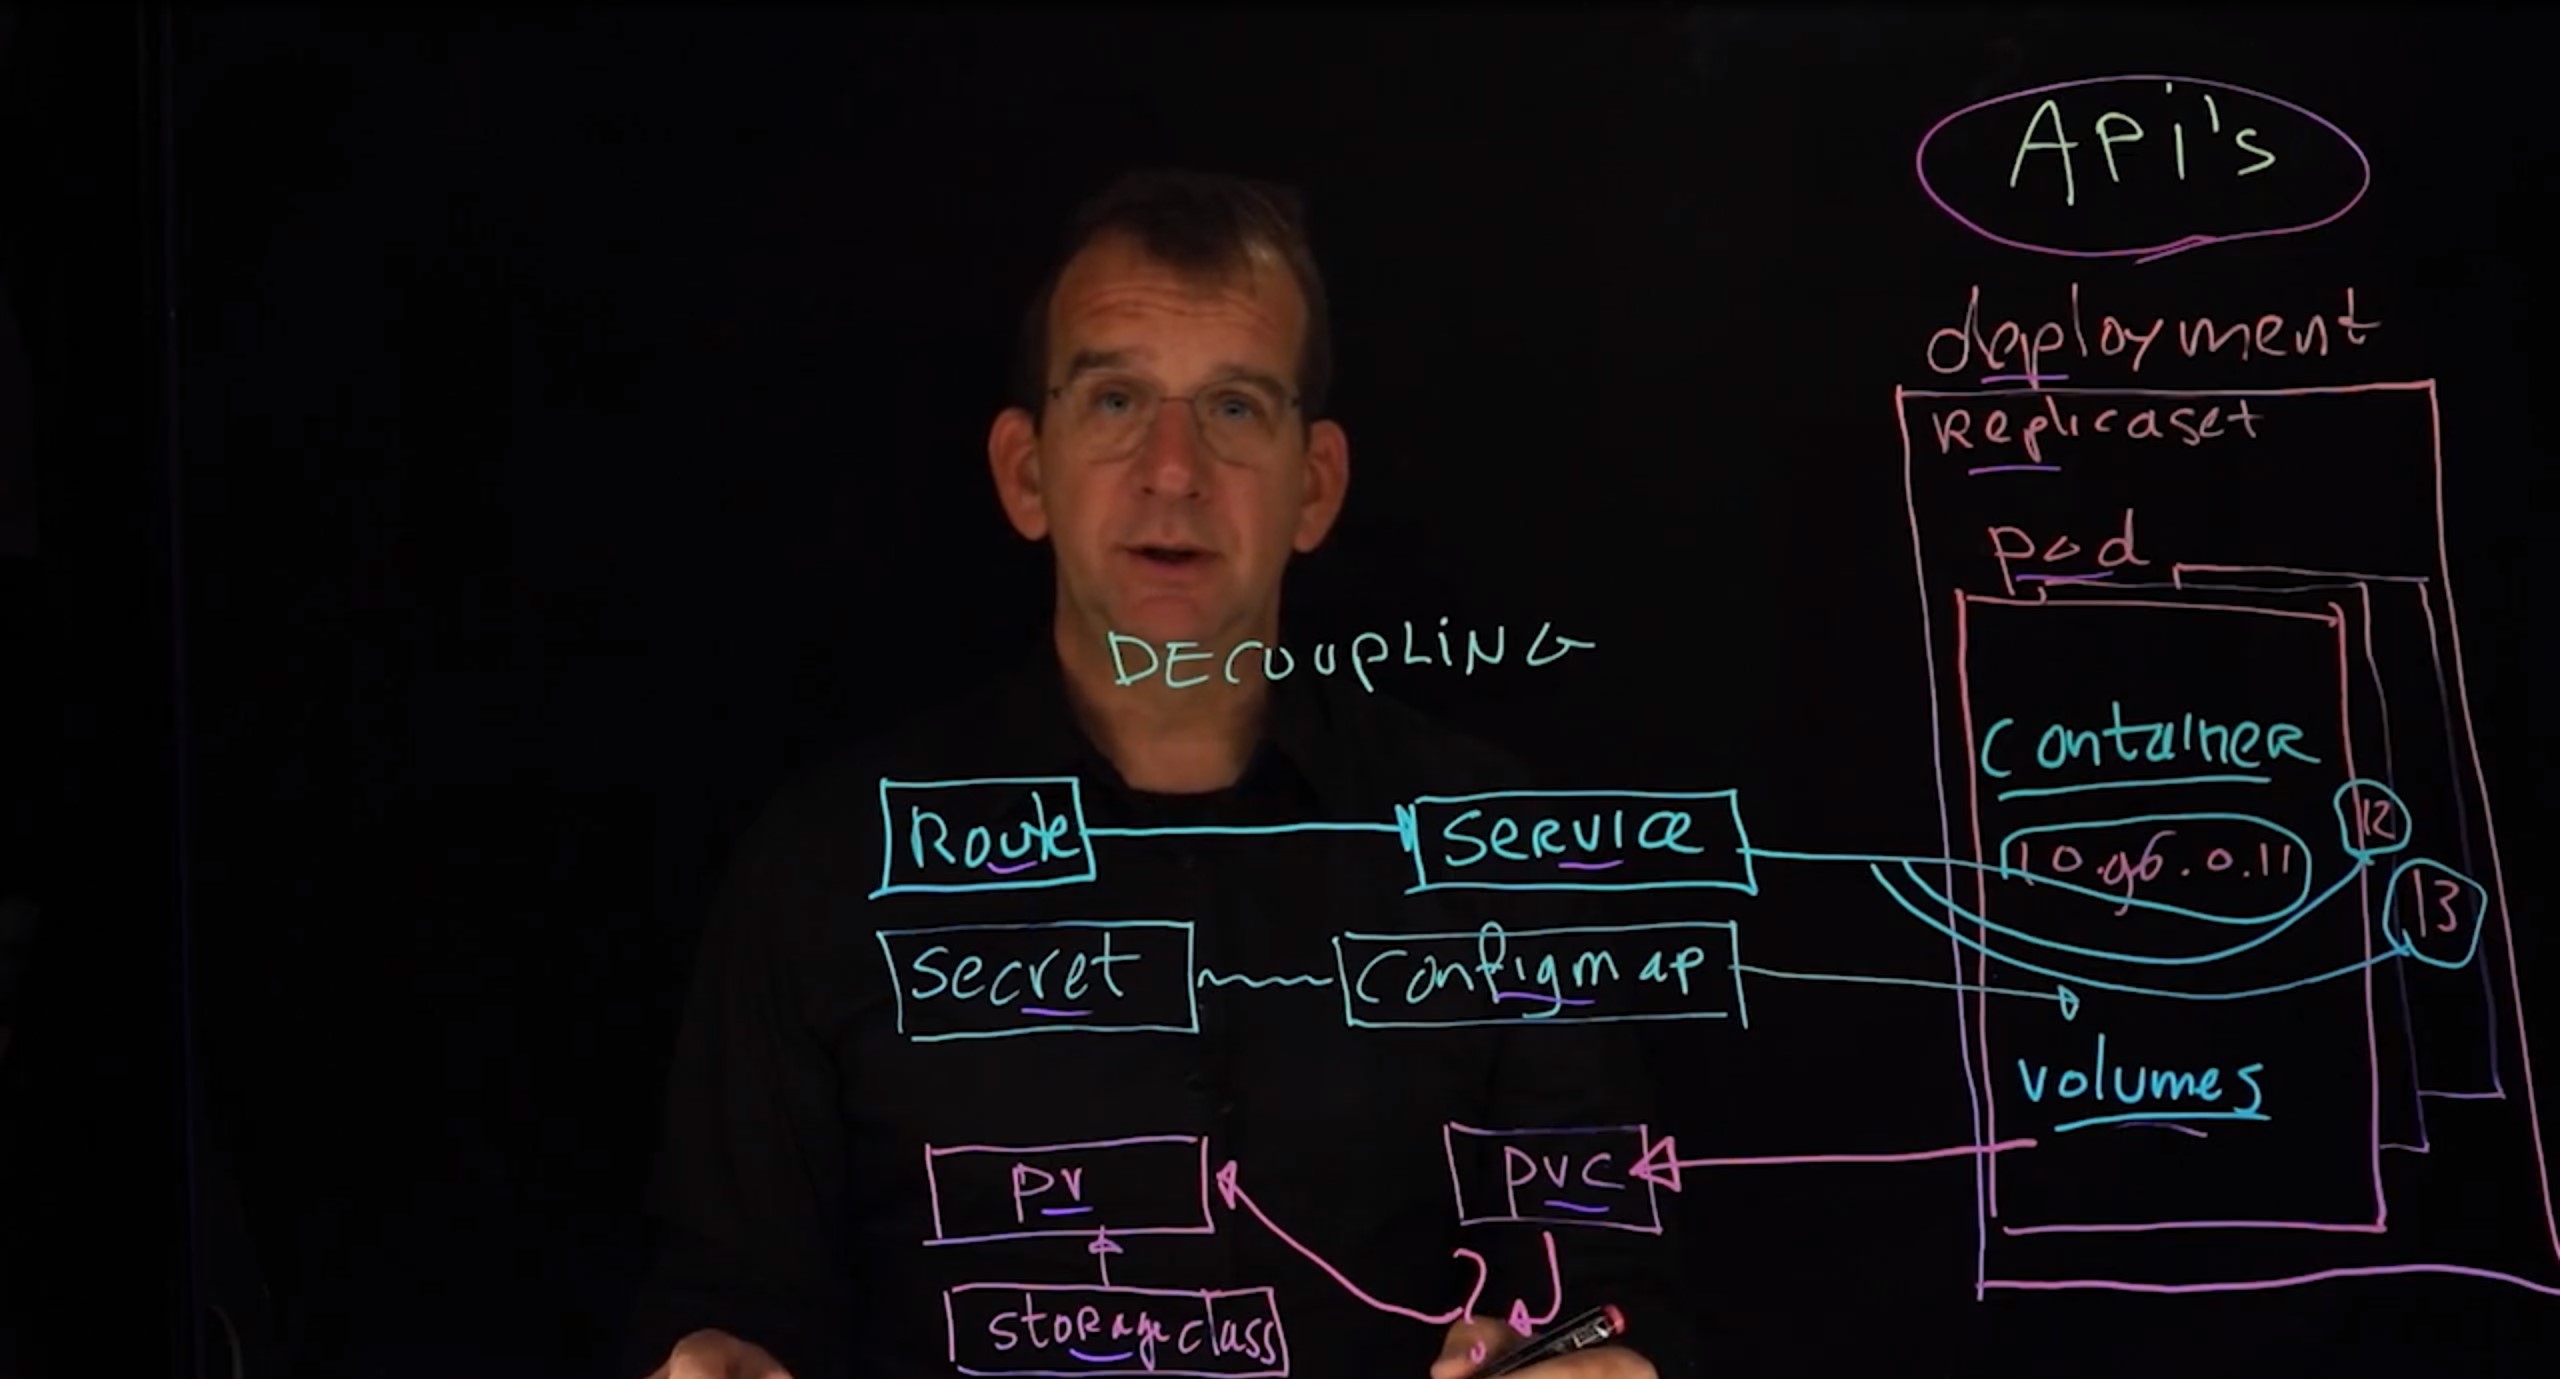 API's
deployment
Replicaset
pod
DECOUPLING
Container
Route
Service
10.96.0.11
12
13
secret
configmap
volumes
pv
pvc
?
storage class